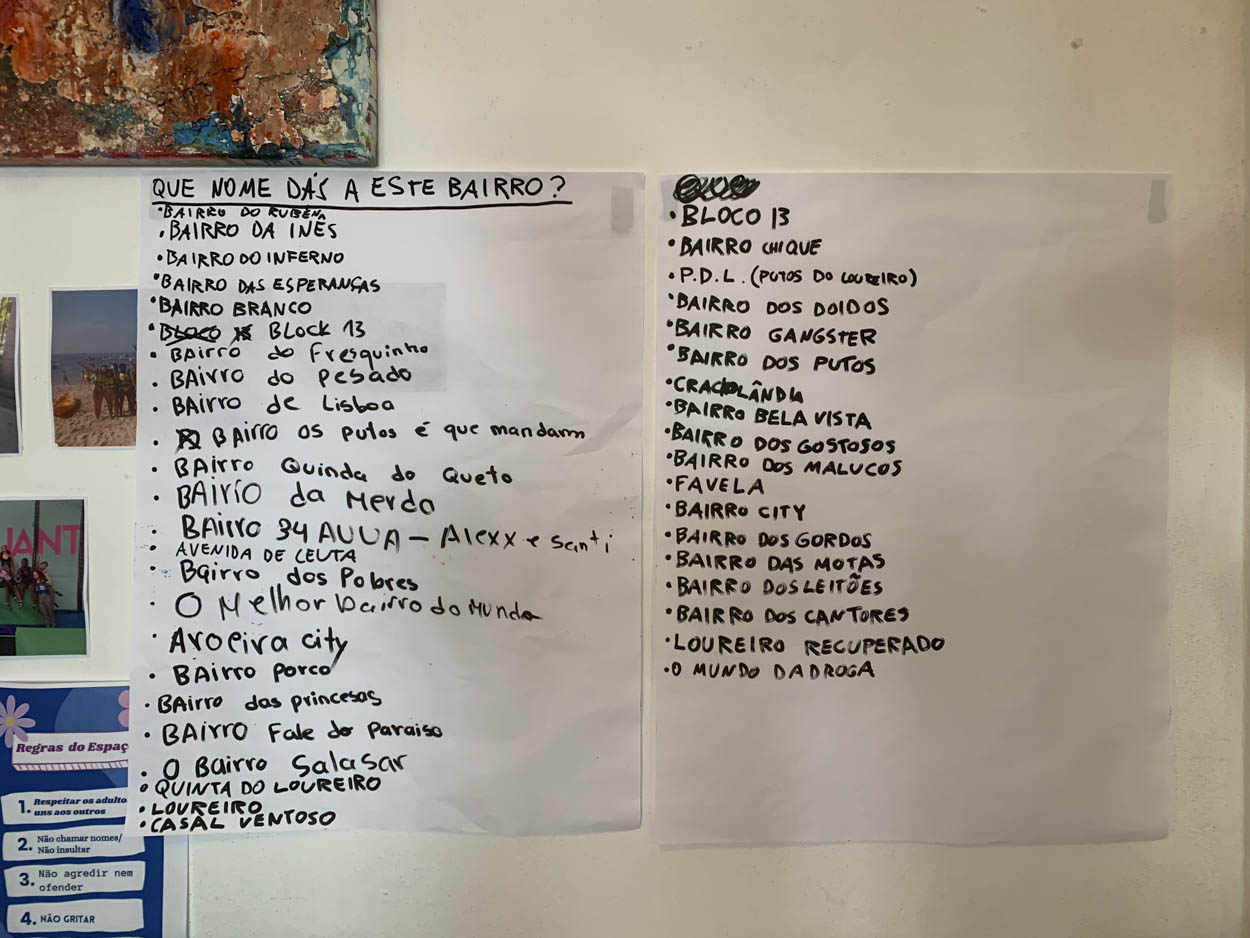 QUE NOME DÁS A ESTE BAIRRO?
• BAIRRO DO RUBEN
• BAIRRO DA INÊS
• BAIRRO DO INFERNO
• BAIRRO DAS ESPERANÇAS
• BAIRRO BRANCO
• BLOCK 13
• BAirro do Fresquinho
• BAirro do Pesado
• BAirro de Lisboa
• BAirro os putos é que mandam
• BAirro Quinda do Queto
• BAirro da Merda
• BAirro 34 AUUA - Alexx e Santi
• AVENIDA DE CEUTA
• Bairro dos Pobres
• O Melhor bairro do Mundo
• Aroeira city
• BAirro Porco
• BAirro das princesas
• BAirro Fale do Paraiso
• O Bairro Salasar
• QUINTA DO LOUREIRO
• LOUREIRO
• CASAL VENTOSO
• BLOCO 13
• BAIRRO CHIQUE
• P.D.L. (PUTOS DO LOUREIRO)
• BAIRRO DOS DOIDOS
• BAIRRO GANGSTER
• BAIRRO DOS PUTOS
• CRACKOLÂNDIA
• BAIRRO BELA VISTA
• BAIRRO DOS GOSTOSOS
• BAIRRO DOS MALUCOS
• FAVELA
• BAIRRO CITY
• BAIRRO DOS GORDOS
• BAIRRO DAS MOTAS
• BAIRRO DOS LEITÕES
• BAIRRO DOS CANTORES
• LOUREIRO RECUPERADO
• O MUNDO DA DROGA
IANT
Regras do Espaç
1. Respeitar os adulto
uns aos outros
2. Não chamar nomes/
Não insultar
3. Não agredir nem
ofender
4. NÃO GRITAR